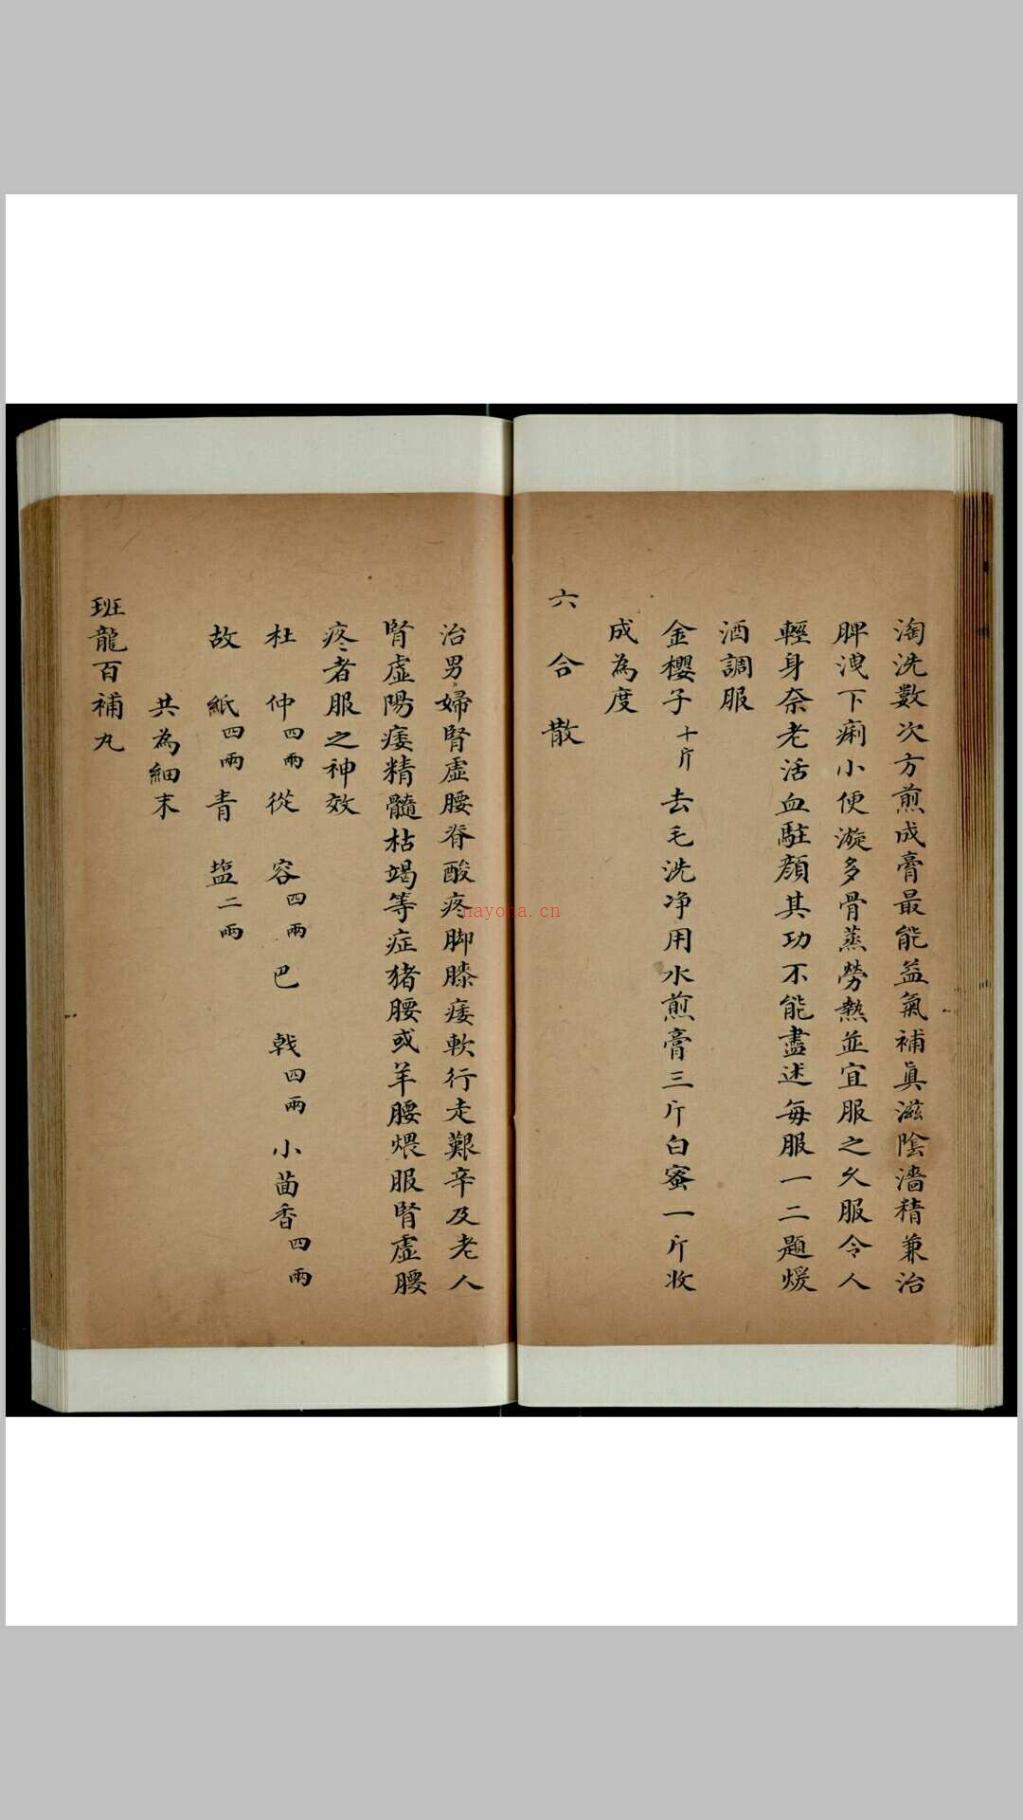 淘洗數次方煎成膏最能益氣補眞滋陰濇精兼治
脾洩下痢小便漩多骨蒸勞熱並宜服之久服令人
輕身奈老活血駐顔其功不能盡述每服一二題煖
酒調服
金櫻子十斤去毛洗净用水煎膏三斤白蜜一斤收
成為度
六合散
治男婦腎虛腰脊酸疼脚膝痿軟行走艱辛及老人
腎虛陽痿精髓枯竭等症猪腰或羊腰煨服腎虛腰
疼者服之神效
杜仲四兩從容四兩巴戟四兩小茴香四兩
故紙四兩青塩二兩
共為細末
班龍百補丸
nayona.cn